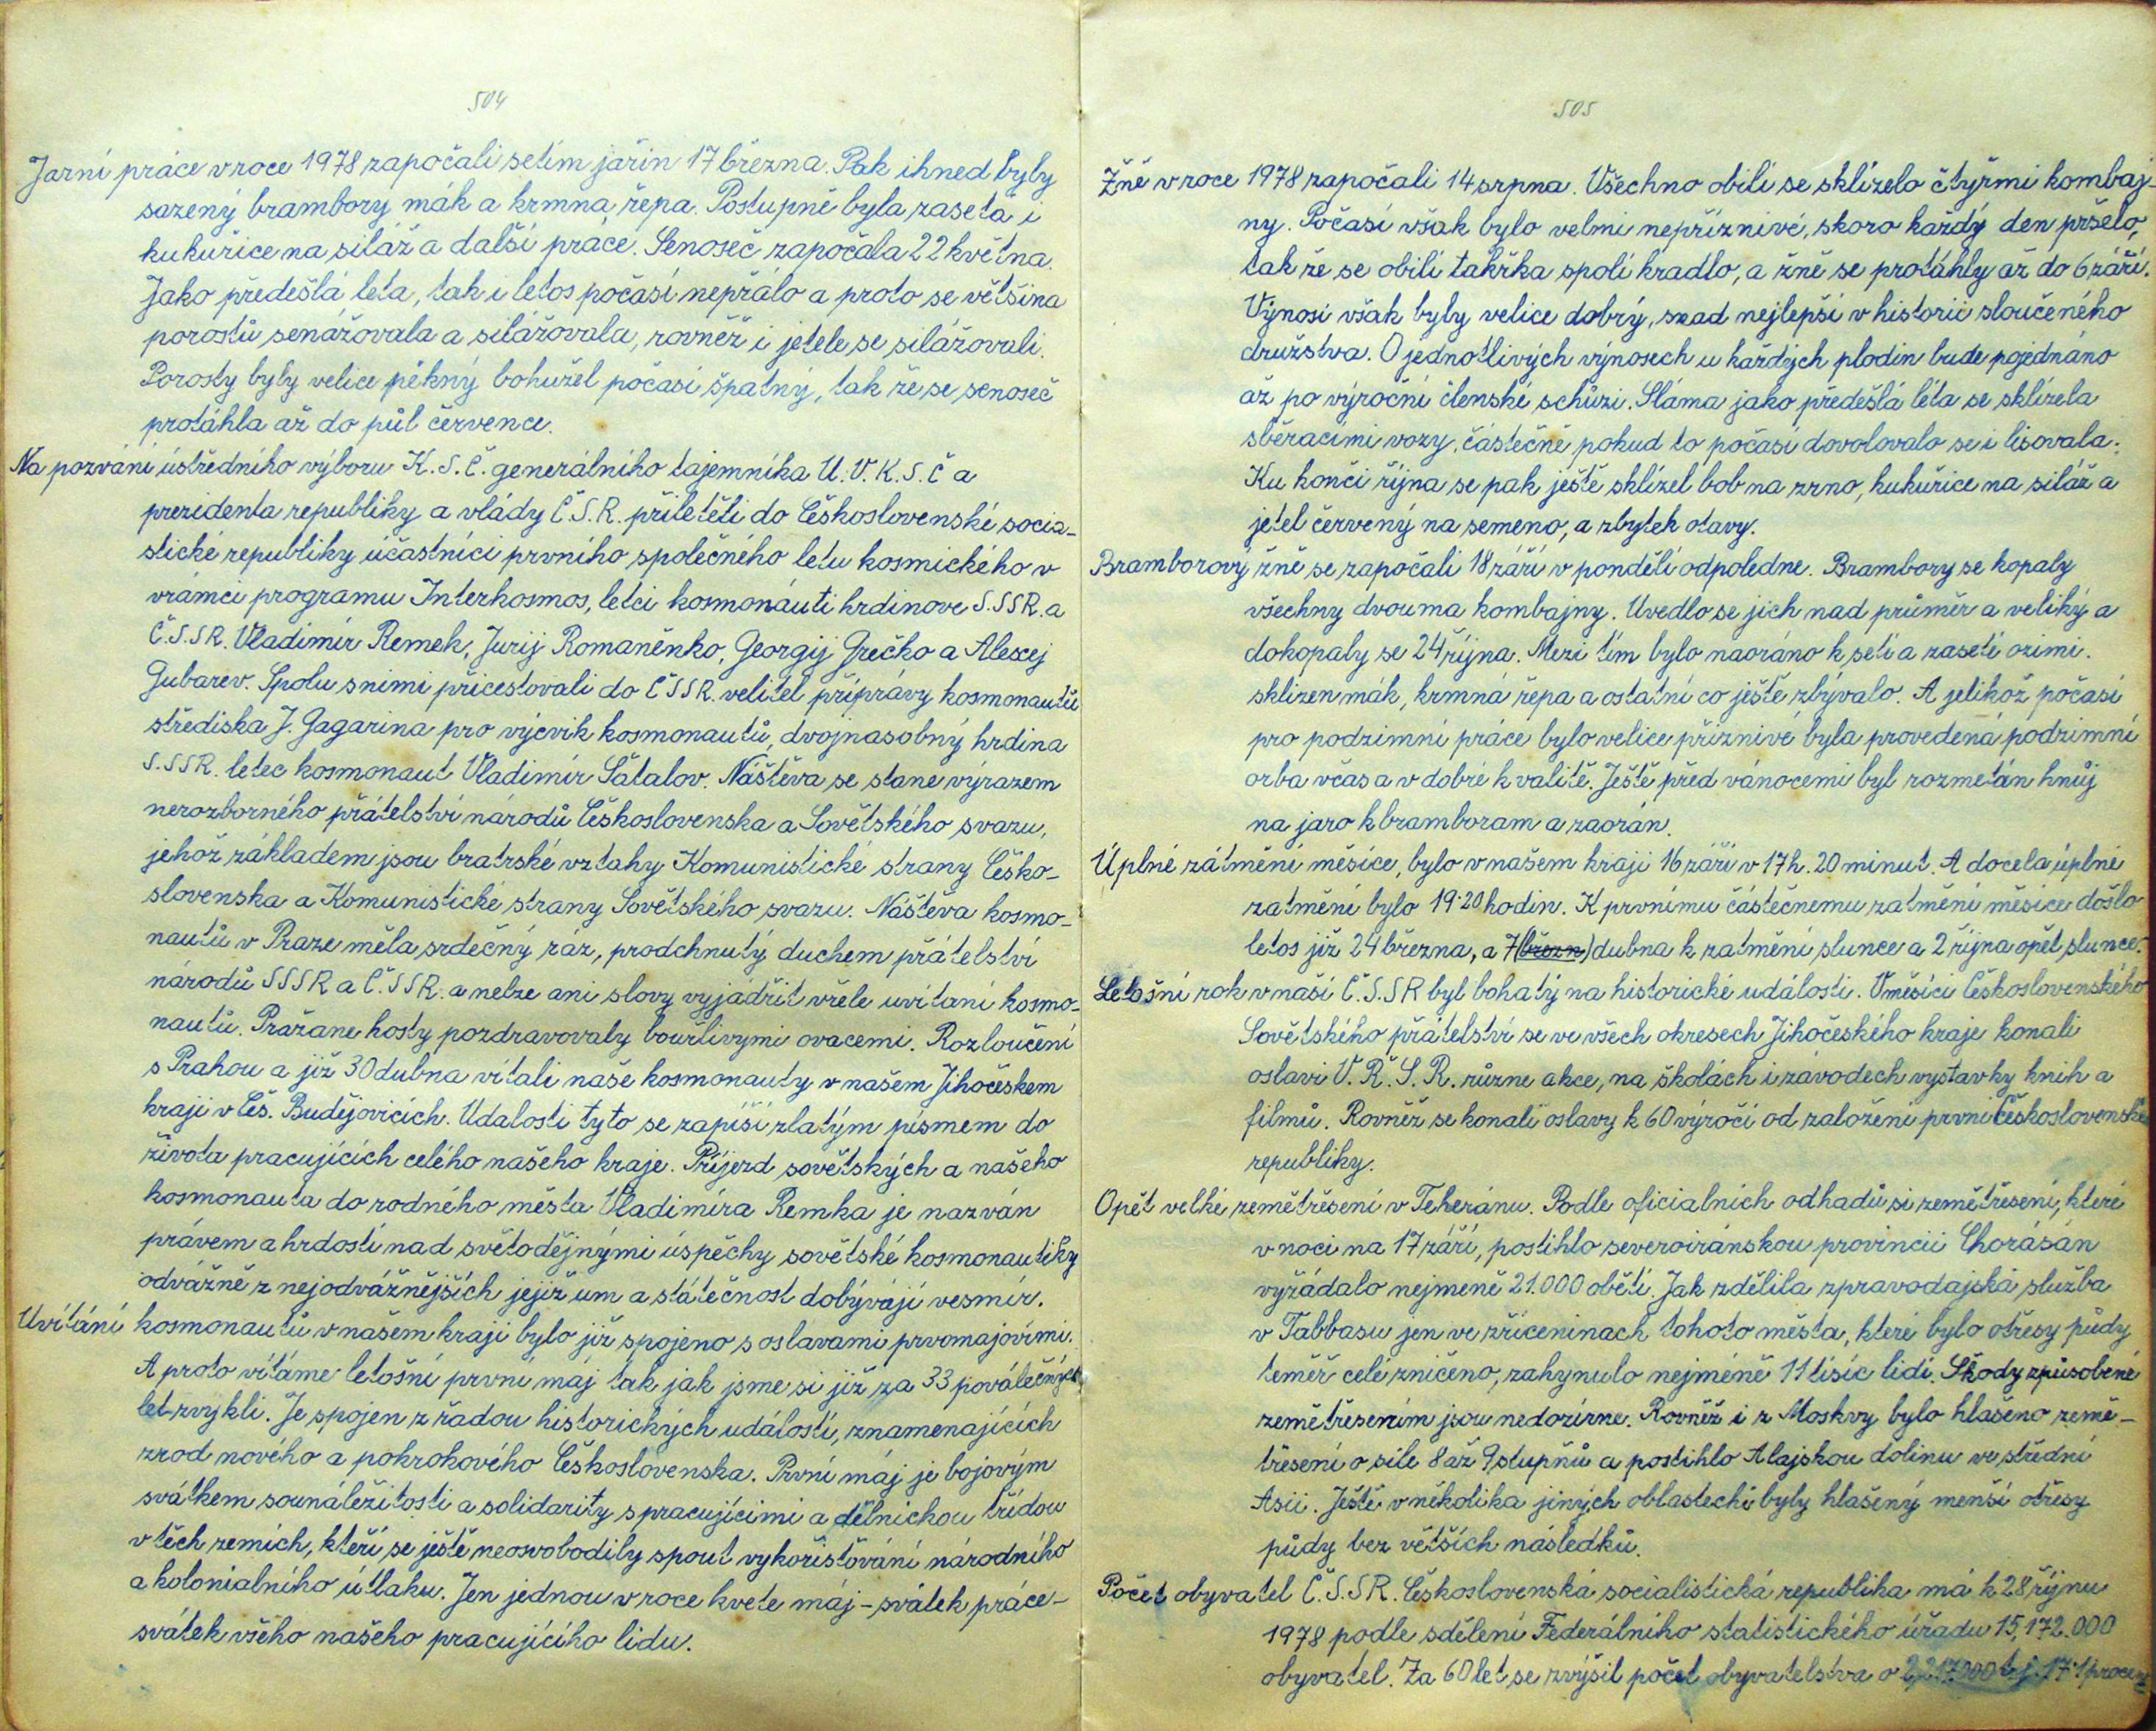 504
Jarní práce v roce 1978 započali setím jařin 17 března. Pak ihned byly
sazený brambory mák a krmná řepa. Postupně byla zasetá i
kukuřice na siláž a další práce. Senoseč započala 22 května.
Jako předešlá leta, tak i letos počasí nepřálo a proto se většina
porostů senážovala a silážovala, rovněž i jetele se silážovali.
Porosty byly velice pěkný bohužel počasí špatný, tak že se senoseč
protáhla až do půl července.
Na pozvání ústředního výboru K.S.Č. generálního tajemníka U.V.K.S.Č a
prezidenta republiky a vlády Č.S.R. přiletěti do Československé socia-
stické republiky účastníci prvního společného letu kosmického v
vrámci programu Interkosmos, letci kosmonáuti hrdinove S.SSR. a
Č.S.SR. Vladimír Remek, Jurij Romaněnko, Georgij Grečko a Alexej
Gubarev. Spolu snimi přicestovali do ČSSR. velitel příprávy kosmonautů
střediska J. Gagarina pro výcvik kosmonautů, dvojnasobný hrdina
S.SSR. letec kosmonaut Vladimír Šátalov. Náštěva se stane výrazem
nerozborného přátelství národů Československa a Sovětského svazu,
jehož základem jsou bratrské vztahy Komunistické strany Česko-
slovenska a Komunistické strany Sovětského svazu. Náštěva kosmo-
nautů v Praze měla srdečný ráz, prodchnutý duchem přátelství
národů SSSR a Č.SSR. a nelze ani slovy vyjádřit vřele uvítaní kosmo-
nautů. Pražane hosty pozdravovaly bouřlivymi ovacemi. Rozloučení
s Prahou a již 30 dubna vítali naše kosmonauty v našem Jihočeskem
kraji v Čes. Budějovicích. Udalosti tyto se zapíší zlatým písmem do
života pracujících celého našeho kraje. Příjezd sovětských a našeho
kosmonauta do rodného města Vladimíra Remka je nazván
právem a hrdostí nad světodějnými úspěchy sovětské kosmonautiky
odvážně z nejodvážnějších jejíž um a státečnost dobývají vesmír.
Uvítání kosmonautů v našem kraji bylo již spojeno s oslavami prvomajovími.
A proto vítáme letošní první máj tak jak jsme si již za 33 poválečných
let zvykli. Je spojen z řadou historických událostí, znamenajících
zrod nového a pokrokového Československa. První máj je bojovým
svátkem sounáležitosti a solidarity s pracujícimi a dělnickou třídou
v těch zemích, kteří se ještě neosvobodily spout vykořisťování národního
a kolonialního útlaku. Jen jednou v roce kvete máj - svátek práce -
svátek všeho našeho pracujícího lidu.
505
Žně v roce 1978 započali 14 srpna. Všechno obilí se sklízelo čtyřmi kombaj-
ny. Počasí však bylo velmi nepříznivé, skoro každý den pršelo,
tak že se obilí takřka spolí kradlo, a žně se protáhly až do 6 září.
Výnosi však byly velice dobrý, snad nejlepší v historii sloučeného
družstva. O jednotlivých výnosech u každých plodin bude pojednáno
až po výroční členské schůzi. Sláma jako předešlá léta se sklízela
sběracími vozy, částečně pokud to počasí dovolovalo se i lisovala.
Ku konči října se pak ještě sklízel bob na zrno, kukuřice na siláž a
jetel červený na semeno, a zbytek otavy.
Bramborový žně se započali 18 září v pondělí odpoledne. Brambory se kopaly
všechny dvouma kombajny. Uvedlo se jich nad průměr a veliký a
dokopaly se 24 října. Mezi tím bylo naoráno k setí a zaseté ozimi.
sklizen mák, krmná řepa a ostatní co ještě zbývalo. A jelikož počasí
pro podzimní práce bylo velice příznivé byla provedená podzimní
orba včas a v dobré kvalitě. Ještě před vánocemi byl rozmetán hnůj
na jaro k bramboram a zaorán.
Úplné zátmění měsíce, bylo v našem kraji 16 září v 17 h. 20 minut. A docela úplné
zatmění bylo 19.20 hodin. K prvnímu částečnemu zatmění měsíce došlo
letos již 24 března, a 7 (březn) dubna k zatmění slunce a 2 října opět slunce.
Letošní rok v naší Č.S.SR byl bohatý na historické události. V měsíci Československého
Sovětského přátelství se ve všech okresech Jihočeského kraje konali
oslavi V.Ř.S.R. různe akce, na školách i závodech vystavky knih a
filmů. Rovněž se konali oslavy k 60 výročí od založení první Československé
republiky.
Opět velké zemětřesení v Teheránu. Podle oficialních odhadů si zemětřesení, které
v noci na 17 září, postihlo severoíránskou provincii Chorásán
vyžádalo nejmeně 21.000 obětí. Jak sdělila zpravodajská služba
v Tabbasu jen ve zříceninach tohoto města, které bylo otřesy půdy
teměř celé zničeno, zahynulo nejméně 11 tisíc lidí. Škody způsobené
zemětřesením jsou nedozírne. Rovněž i z Moskvy bylo hlašeno země-
třesení o síle 8 až 9 stupňů a postihlo Alajskou dolinu ve střední
Asii. Ještě v několika jiných oblastech byly hlašený menší otřesy
půdy bez větších následků.
Počet obyvatel Č.S.SR. Československá socialistická republika má k 28 říjnu
1978 podle sdělení Federálního statistického úřadu 15,172.000
obyvatel. Za 60 let se zvýšil počet obyvatelstva o 2,217.000 t.j. 17.1 procen